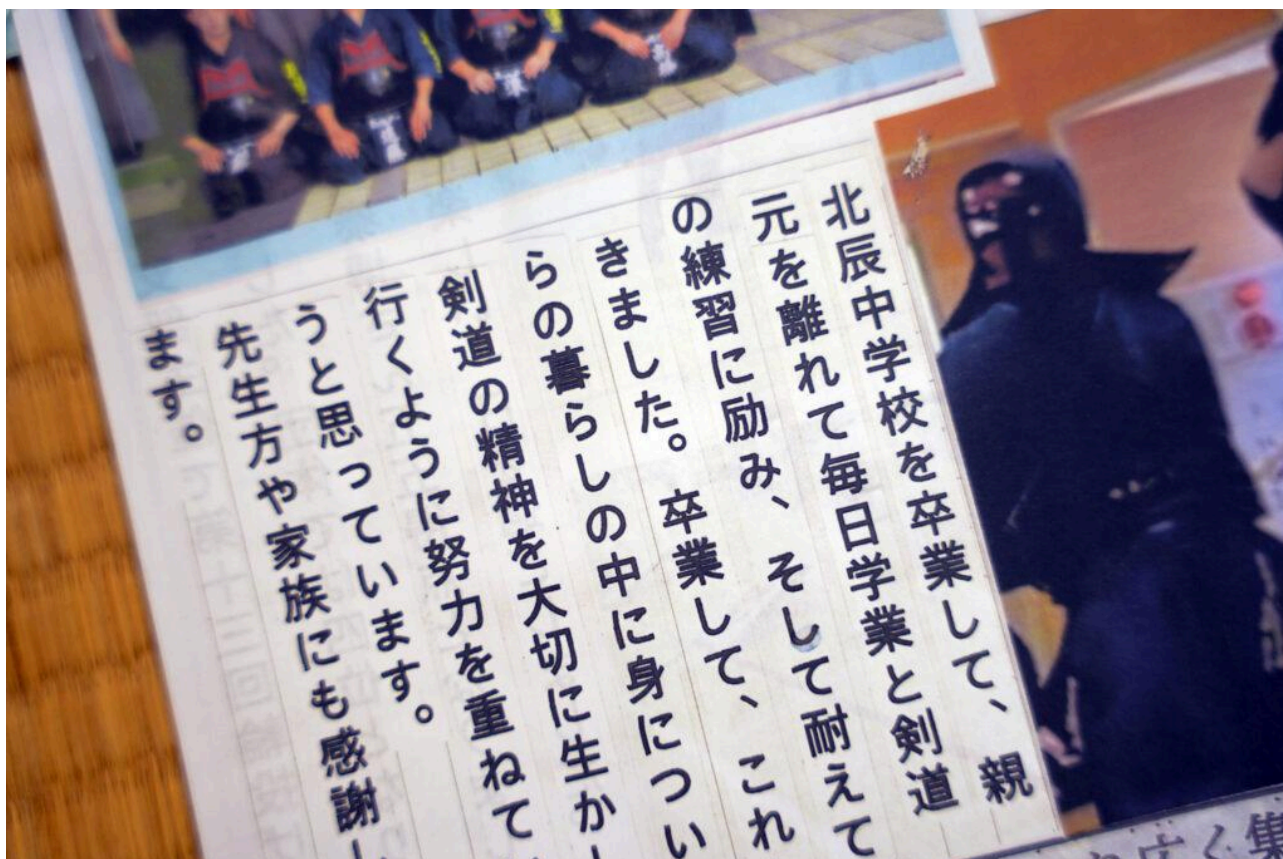 北辰中学校を卒業して、親
元を離れて毎日学業と剣道
の練習に励み、そして耐えて
きました。卒業して、これ
らの暮らしの中に身につい
剣道の精神を大切に生か
行くように努力を重ねて
うと思っています。
先生方や家族にも感謝し
ます。
広く集